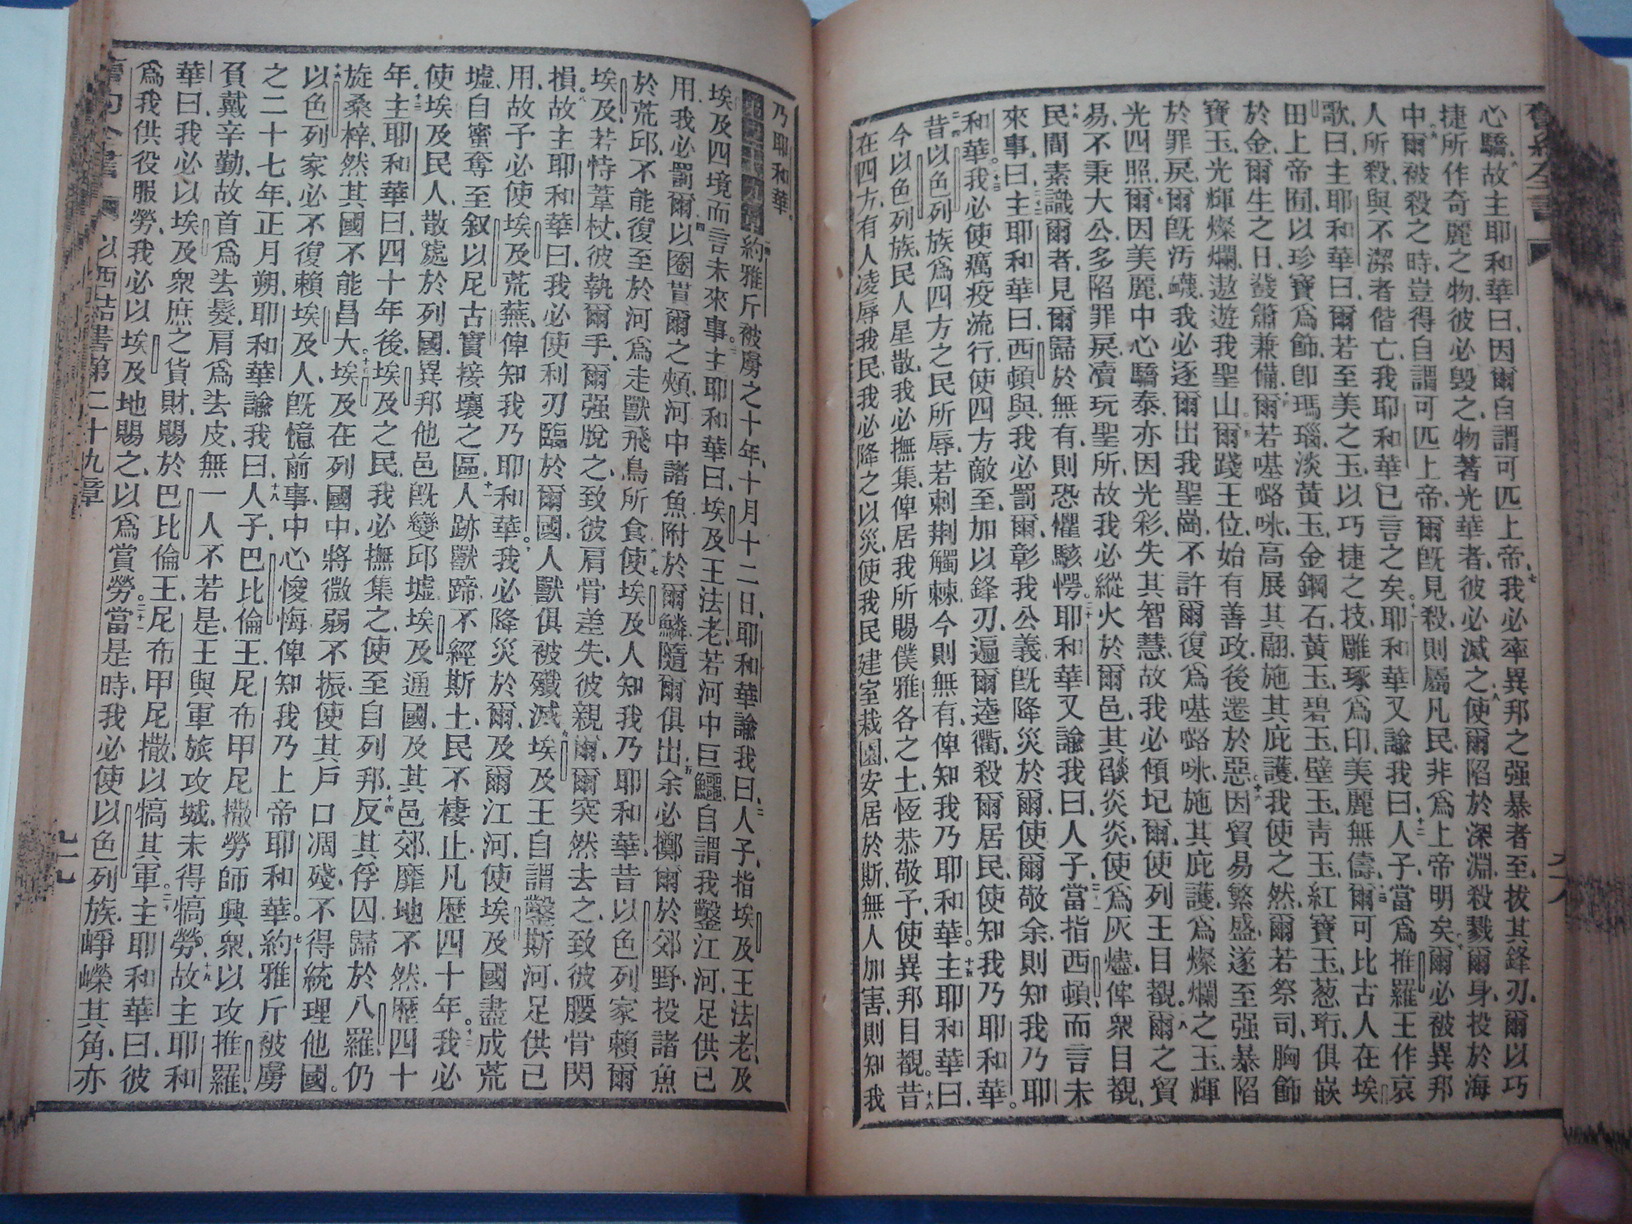 心驕故主耶和華曰因爾自謂可匹上帝我必率異邦之强暴者至拔其鋒刃爾以巧
捷所作奇麗之物彼必毀之物著光華者彼必滅之使爾陷於深淵殺戮爾身投於海
中爾被殺之時豈得自謂可匹上帝爾旣見殺則屬凡民非爲上帝明矣爾必被異邦
人所殺與不潔者偕亡我耶和華已言之矣耶和華又諭我曰人子當爲推羅王作哀
歌曰主耶和華曰爾若至美之玉以巧捷之技雕琢爲印美麗無儔爾可比古人在埃
田上帝囿以珍寶爲飾卽瑪瑙淡黃玉金鋼石黃玉碧玉璧玉靑玉紅寶玉葱珩俱嵌
於金爾生之日發簫兼備爾若𠼻𡀔㕸高展其翮施其庇護我使之然爾若祭司胸飾
寶玉光輝燦爛遨遊我聖山爾踐王位始有善政後遷於惡因貿易繁盛遂至强暴陷
於罪戾爾旣汚衊我必逐爾出我聖崗不許爾復爲施其庇護爲燦爛之玉輝
光四照爾因美麗中心驕泰亦因光彩失其智慧故我必傾圮爾使列王目覩爾之貿
易不秉大公多陷罪戾瀆玩聖所故我必縱火於爾邑其燄炎炎使爲灰燼俾衆目覩
民間素識爾者見爾歸於無有則恐懼駭愕耶和華又諭我曰人子當指西頓而言未
來事曰主耶和華曰西頓與我必罰爾彰我公義旣降災於爾使爾敬余則知我乃耶
和華我必使癘疫流行使四方敵至加以鋒刃遍爾逵衢殺爾居民使知我乃耶和華
昔以色列族爲四方之民所辱若刺荆觸棘今則無有俾知我乃耶和華主耶和華曰
今以色列族民人星散我必撫集俾居我所賜僕雅各之土恆恭敬予使異邦目覩昔
在四方有人凌辱我民我必降之以災使我民建室栽園安居於斯無人加害則知我
乃耶和華
約雅斤被虜之十年十月十二日耶和華諭我曰人子指埃及王法老及
埃及四境而言未來事主耶和華曰埃及王法老若河中巨鱷自謂我鑿江河足供己
用我必罰爾以圈罥爾之頰河中諸魚附於爾鱗隨爾俱出余必擲爾於郊野投諸魚
於荒邱不能復至於河爲走獸飛鳥所食使埃及人知我乃耶和華昔以色列家賴爾
埃及若恃葦杖彼執爾手爾强脫之致彼肩骨差失彼親爾爾突然去之致彼腰骨閃
損故主耶和華曰我必使利刃臨於爾國人獸俱被殲滅埃及王自謂鑿斯河足供己
用故予必使埃及荒蕪俾知我乃耶和華我必降災於爾及爾江河使埃及國盡成荒
墟自蜜奪至叙以尼古實接壤之區人跡獸蹄不經斯土民不棲止凡歷四十年我必
使埃及民人散處於列國異邦他邑旣變邱墟埃及通國及其邑郊靡地不然歷四十
年主耶和華曰四十年後埃及之民我必撫集之使至自列邦反其俘囚歸於八羅仍
旋桑梓然其國不能昌大埃及在列國中將微弱不振使其戶口凋殘不得統理他國
以色列家必不復賴埃及人旣憶前事中心悛悔俾知我乃上帝耶和華約雅斤被虜
之二十七年正月朔耶和華諭我曰人子巴比倫王尼布甲尼撒勞師興衆以攻推羅
負戴辛勤故首爲去髮肩爲去皮無一人不若是王與軍旅攻城未得犒勞故主耶和
華曰我必以埃及衆庶之貨財賜於巴比倫王尼布甲尼撒以犒其軍主耶和華曰彼
爲我供役服勞我必以埃及地賜之以爲賞勞當是時我必使以色列族崢嶸其角亦
以西結書第二十九章